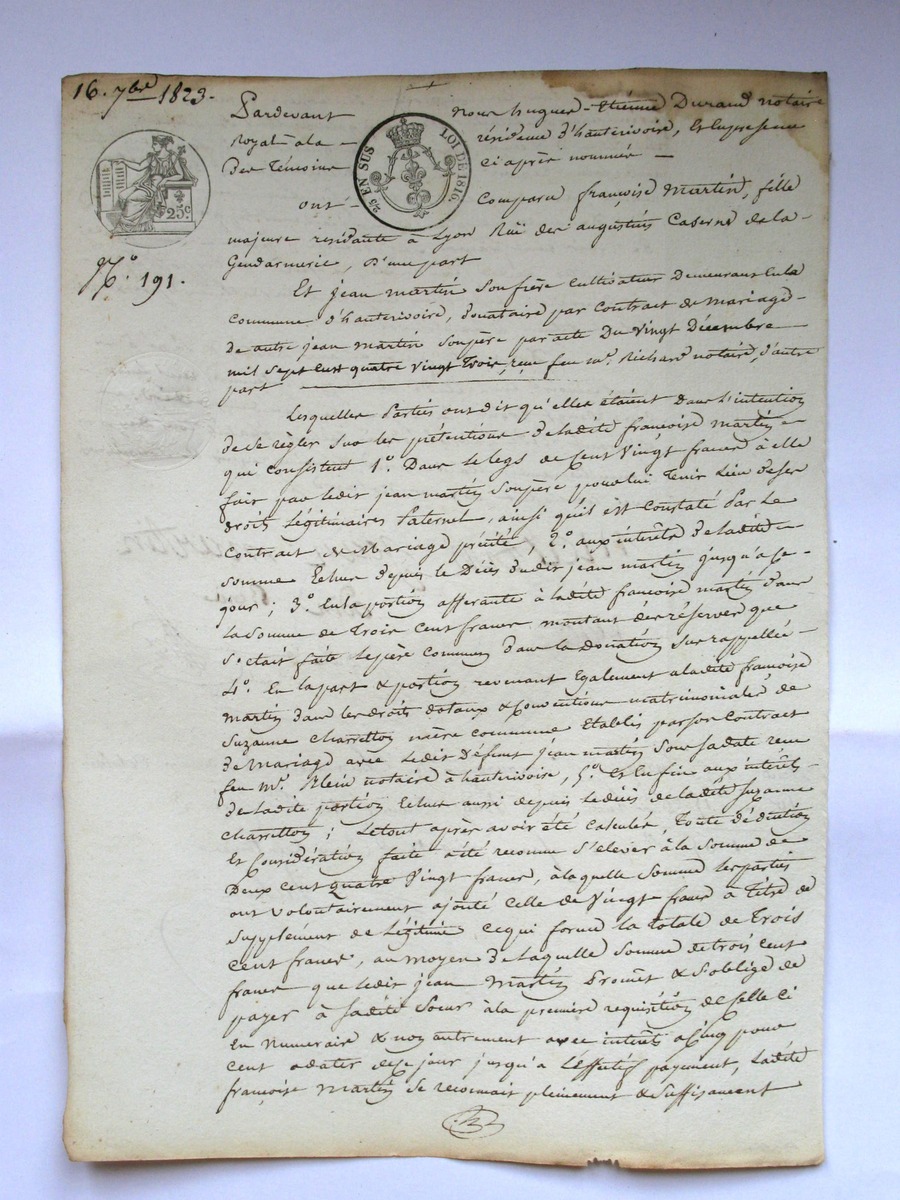 16. 7bre 1823.
Pardevant nous hugues-Etienne Durand notaire
royal à la résidence d'hauterivoire, et en presence
des témoins ci après nommés —
25 EN SUS LOI DE 1816.
25c
ont comparu françoise Martin, fille
majeure residante à Lyon Ruë des augustins Caserne de la
Gendarmerie, d'une part
N.o 191.
Et jean martin son frère cultivateur demeurant en la
commune d'hauterivoire, donataire par contract de mariage
de autre jean martin son père par acte du vingt décembre
mil sept cent quatre vingt trois, reçu feu me. Richard notaire, d'autre
part
Lesquelles Parties ont dit qu'elles étaient dans l'intention
de se règler sur les prétentions de ladite françoise martin
qui consistent 1.o Dans le legs de cent vingt francs à elle
fait par ledit jean martin son père pour lui tenir lieu de ses
droits légitimaires Paternel, ainsi qu'il est constaté par le
contract de Mariage précité, 2.o aux intérêts de ladite
somme échus depuis le Décès dudit jean martin jusqu'à ce
jour; 3.o en la portion afferante à ladite françoise martin dans
la somme de trois cent francs montant des réserves que
s'était faite le père commun dans la donation sus rappellée
4.o En la part & portion revenant également a ladite françoise
martin dans les droits dotaux & conventions matrimoniales de
Suzanne charretton mère commune etablis par son contract
de mariage avec ledit défunt jean martin sous sa date reçu
feu me. notaire à hauterivoire, 5.o Et enfin aux intérêts
de ladite portion échus aussi depuis le décès de ladite Suzanne
charretton; le tout après avoir été calculés, toute déduction
et considération faite a été reconnu s'élever à la somme de
Deux cent quatre vingt francs, à laquelle somme les parties
ont volontairement ajouté celle de vingt francs à titre de
supplement de légitime ce qui forme la totale de trois
cent francs, au moyen de laquelle somme de trois cent
francs que ledit jean martin promet & s'oblige de
payer à sadite soeur à la première requisition de celle ci
en numeraire & non autrement avec intérêt a cinq pour
cent a dater de ce jour jusqu'à l'effectif payement, ladite
françoise martin se reconnait pleinement & suffisament